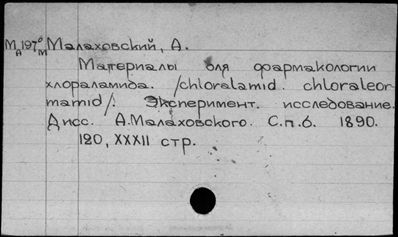 М 197 0 Малаховский, А.
А М
Материалы для фармакологии
хлораламида. /chloralamid. chloraleor-
mamid/. Эксперимент. исследование.
Дисс. А.Малаховского. С.п.б. 1890.
120, XXXII стр.